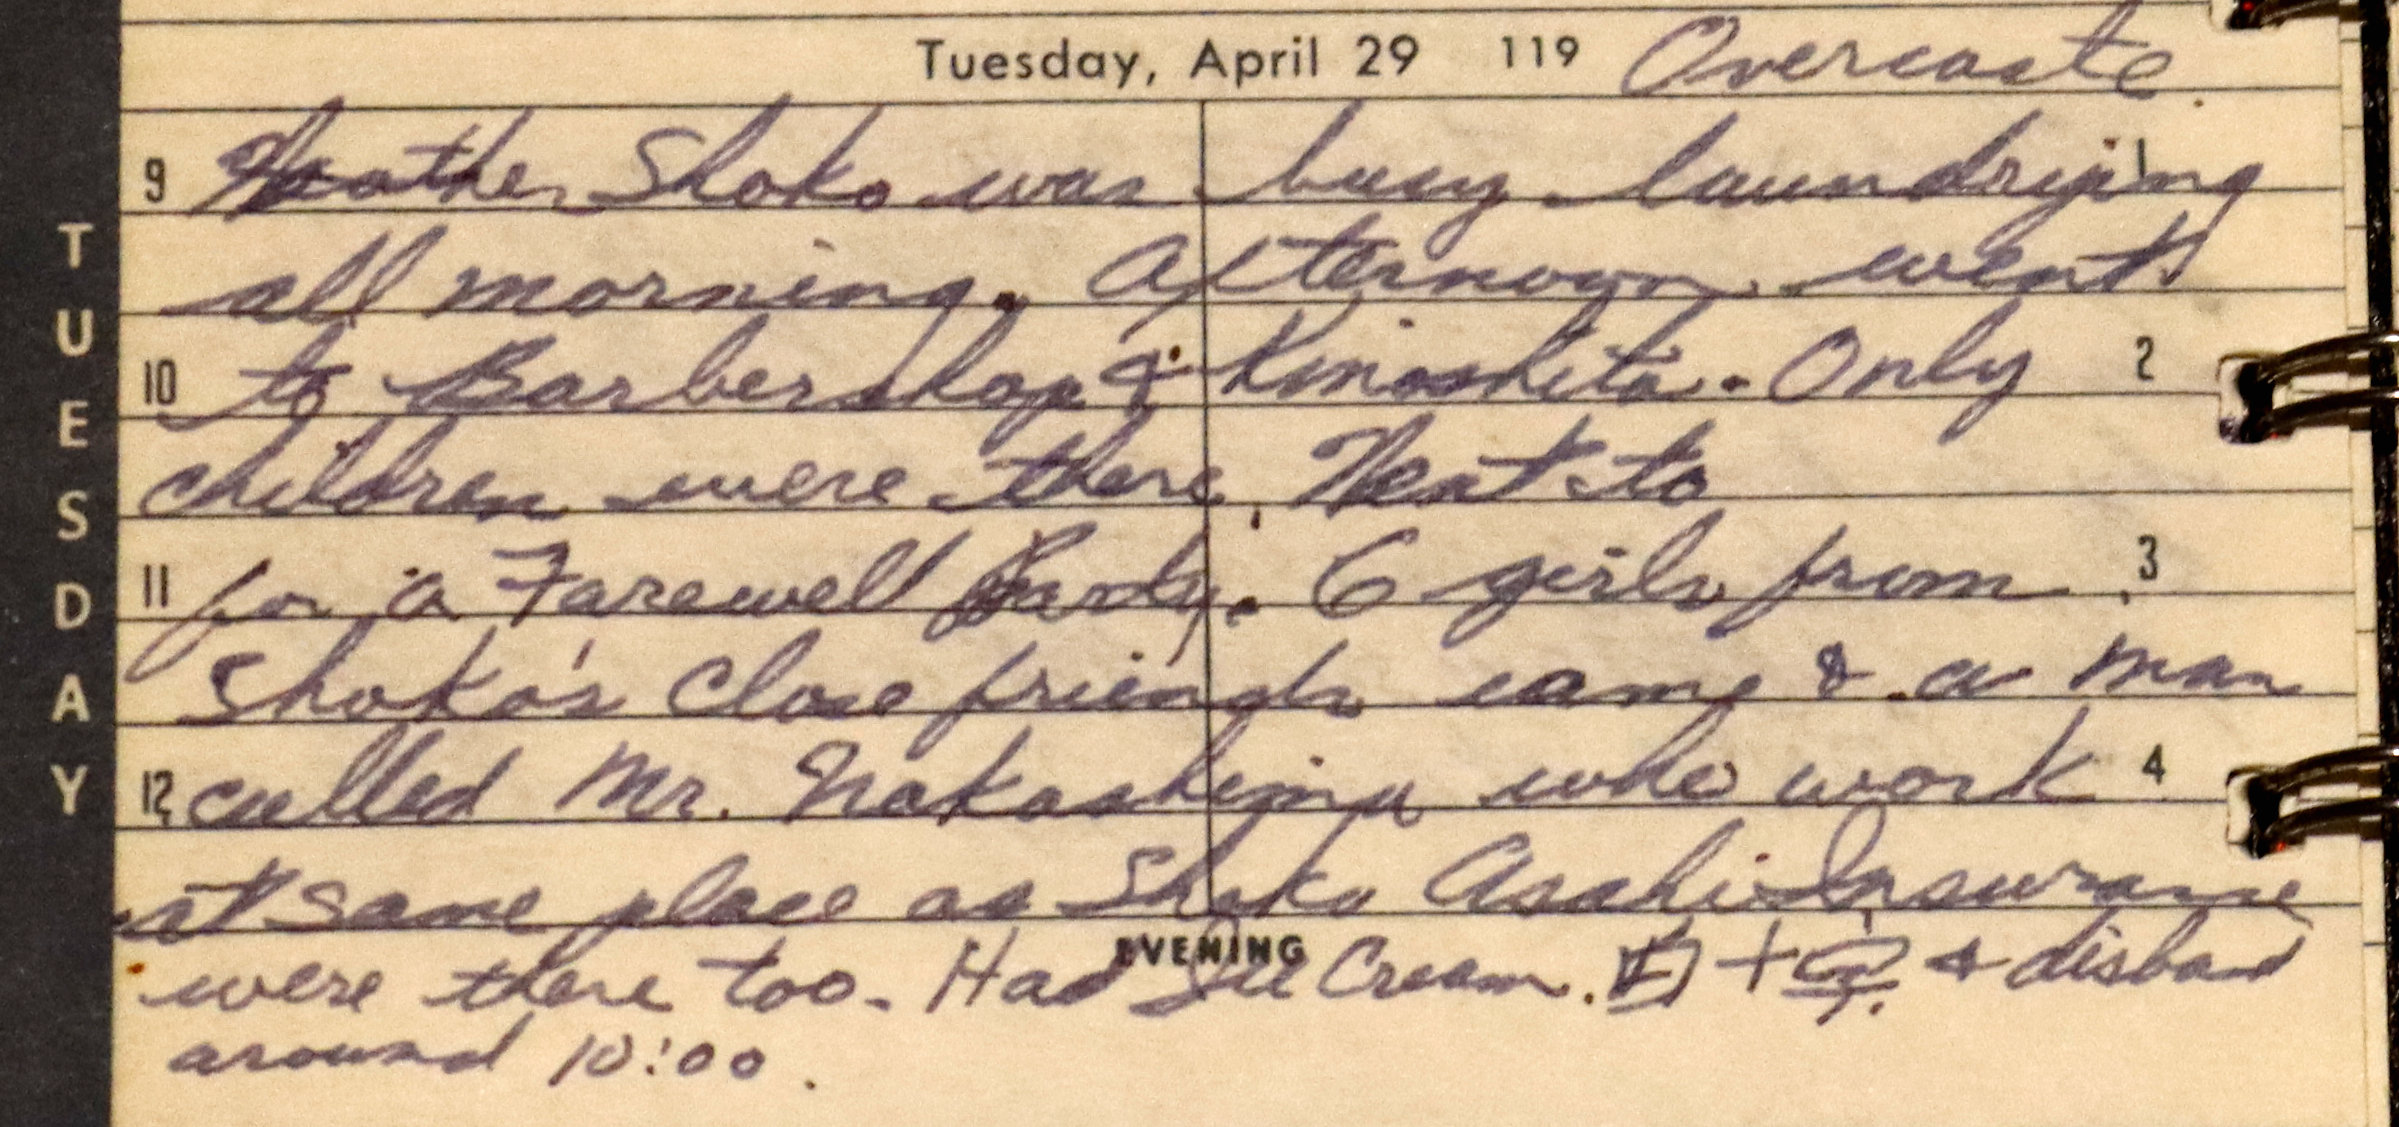 Tuesday, April 29 119 Overcaste
TUESDAY
9 Shoko was busy laundrying 1
all morning. Afternoon went
10 to Barbershop & Kinoshita. Only 2
children were there. Next to
11 for a Farewell Party. 6 girls from 3
Shoko's close friends came & a man
12 called Mr. Nakashima who work 4
at same place as Shoko Asahi Insurance
EVENING
were there too. Had Ice Cream. + & disband
around 10:00.